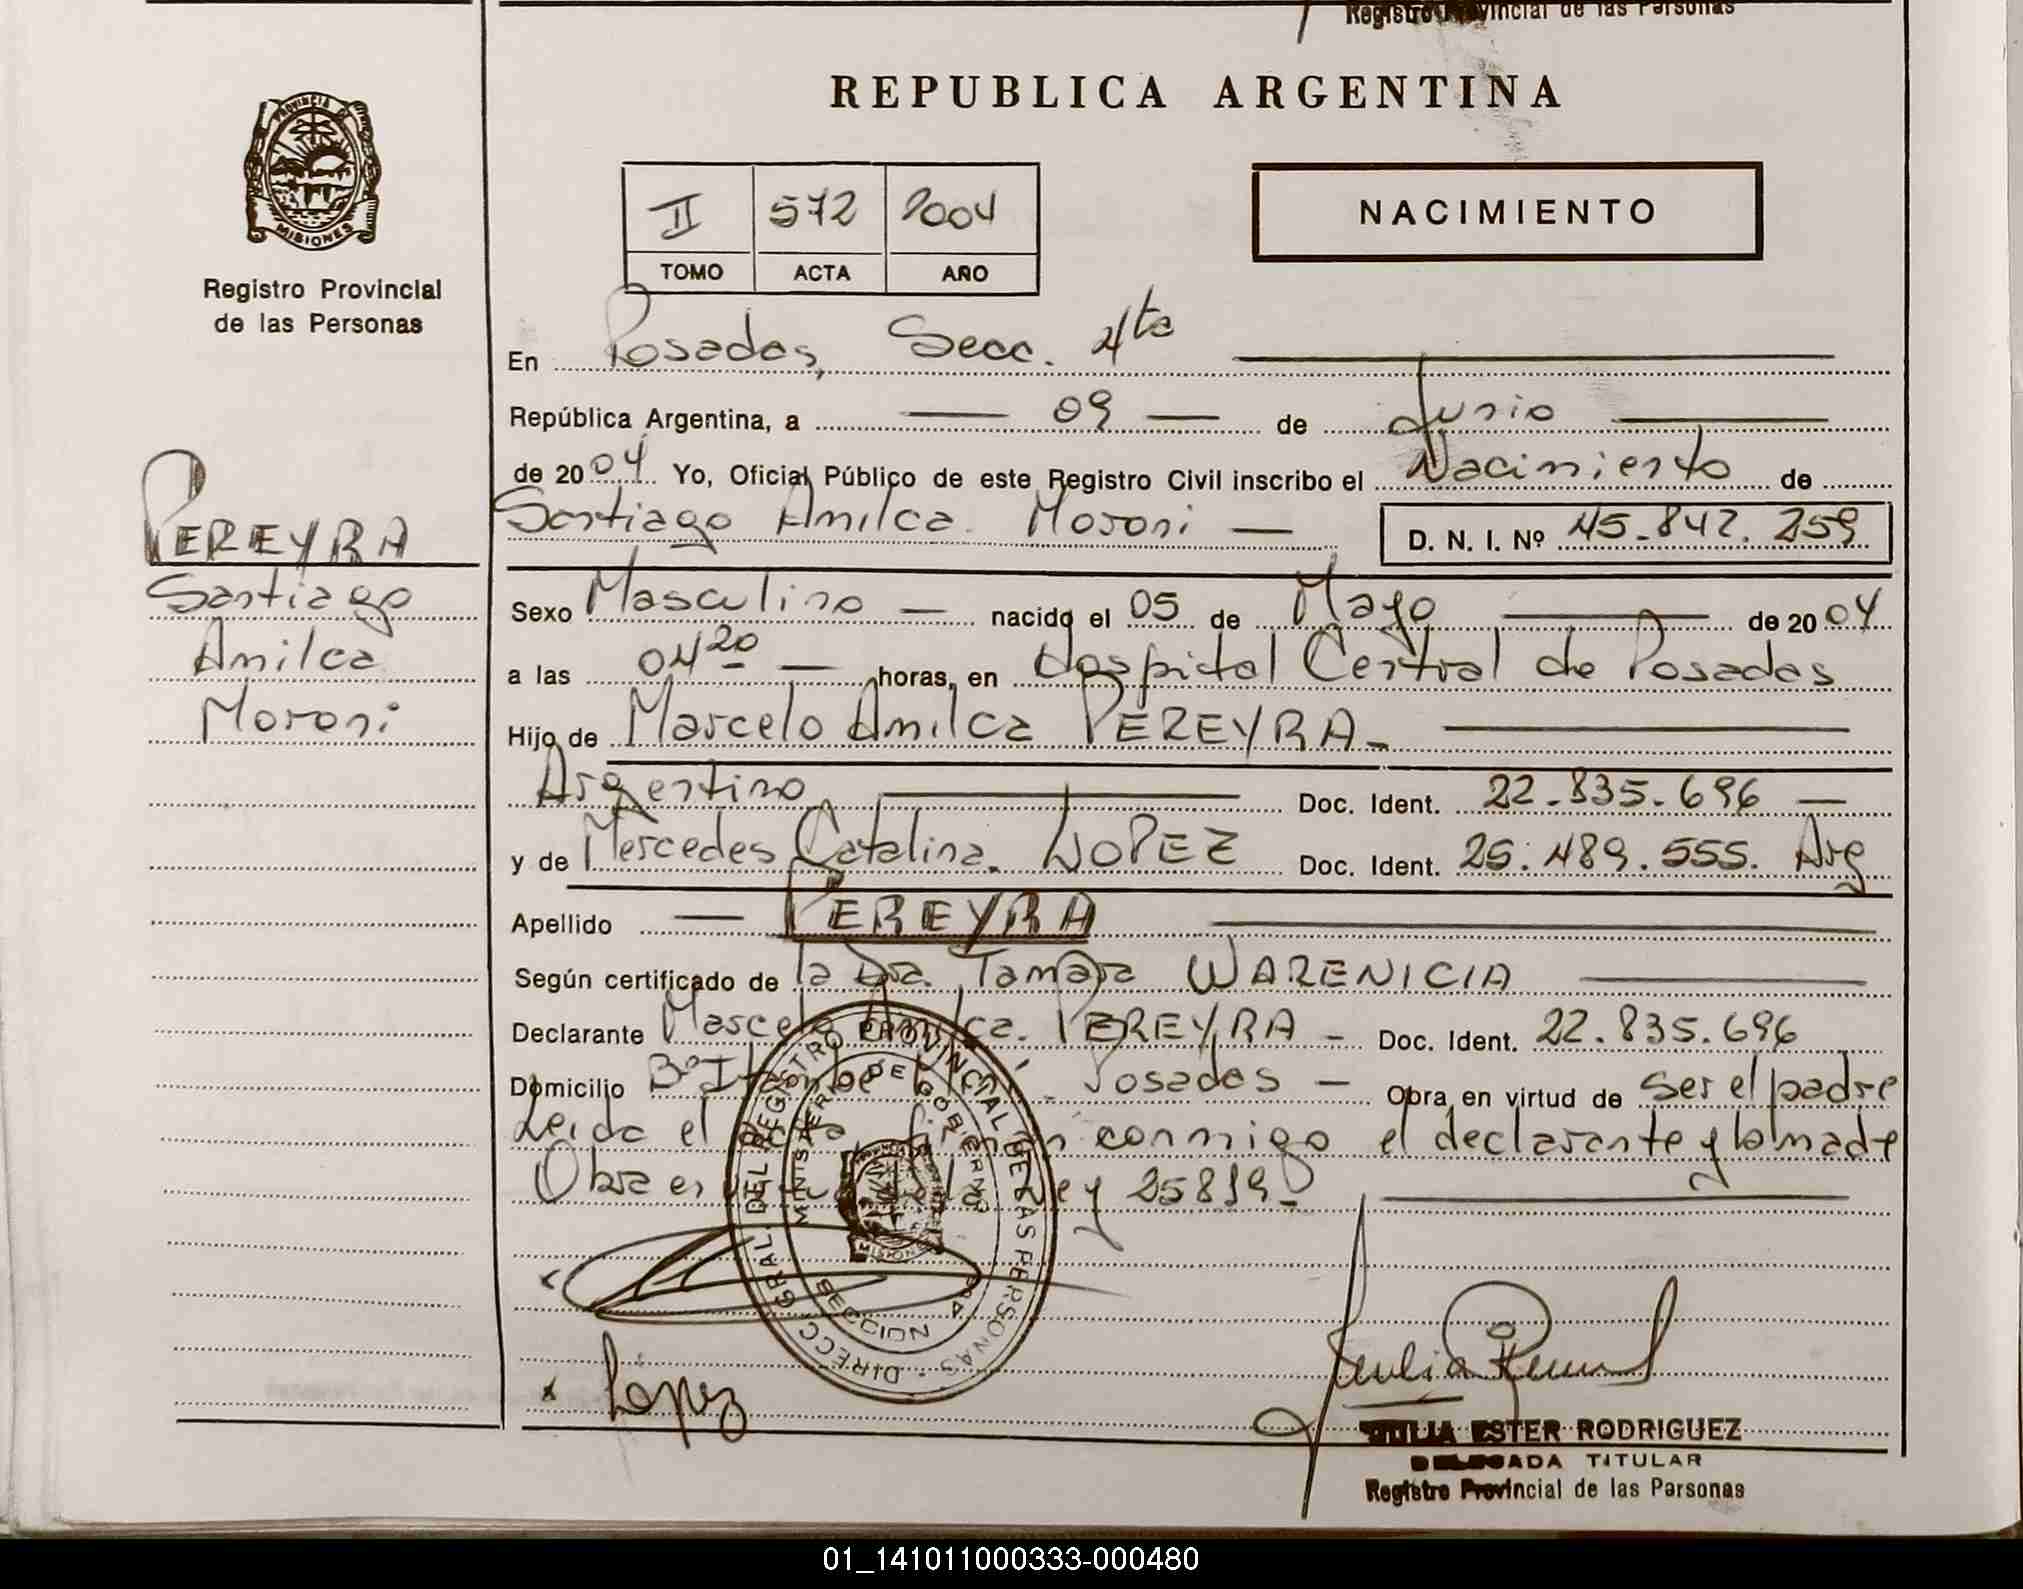 Registro Provincial de las Personas
REPUBLICA ARGENTINA
PROVINCIA
MISIONES
Registro Provincial
de las Personas
II 572 2004
TOMO ACTA AÑO
NACIMIENTO
En Posadas, Secc. 4ta
República Argentina, a 09 de Junio
de 2004 Yo, Oficial Público de este Registro Civil inscribo el Nacimiento de
Santiago Amilca Moroni D. N. I. Nº 45.842.259
PEREYRA
Santiago
Amilca
Moroni
Sexo Masculino nacido el 05 de Mayo de 2004
a las 04 20 horas, en Hospital Central de Posadas
Hijo de Marcelo Amilca PEREYRA
Argentino Doc. Ident. 22.835.696
y de Mercedes Catalina LOPEZ Doc. Ident. 25.489.555. Arg
Apellido PEREYRA
Según certificado de la Dra. Tamara WARENICIA
Declarante Marcelo Amilca PEREYRA Doc. Ident. 22.835.696
Domicilio Bº Posadas Obra en virtud de ser el padre
Leida el conmigo el declarante y la madre
Obra en Ley 25819
DIRECC. GRAL. DEL REGISTRO PROVINCIAL DE LAS PERSONAS
MINISTERIO DE GOBIERNO
MISIONES
SECCION 4ta
Lopez
JULIA ESTER RODRIGUEZ
DELEGADA TITULAR
Registro Provincial de las Personas
01_141011000333-000480